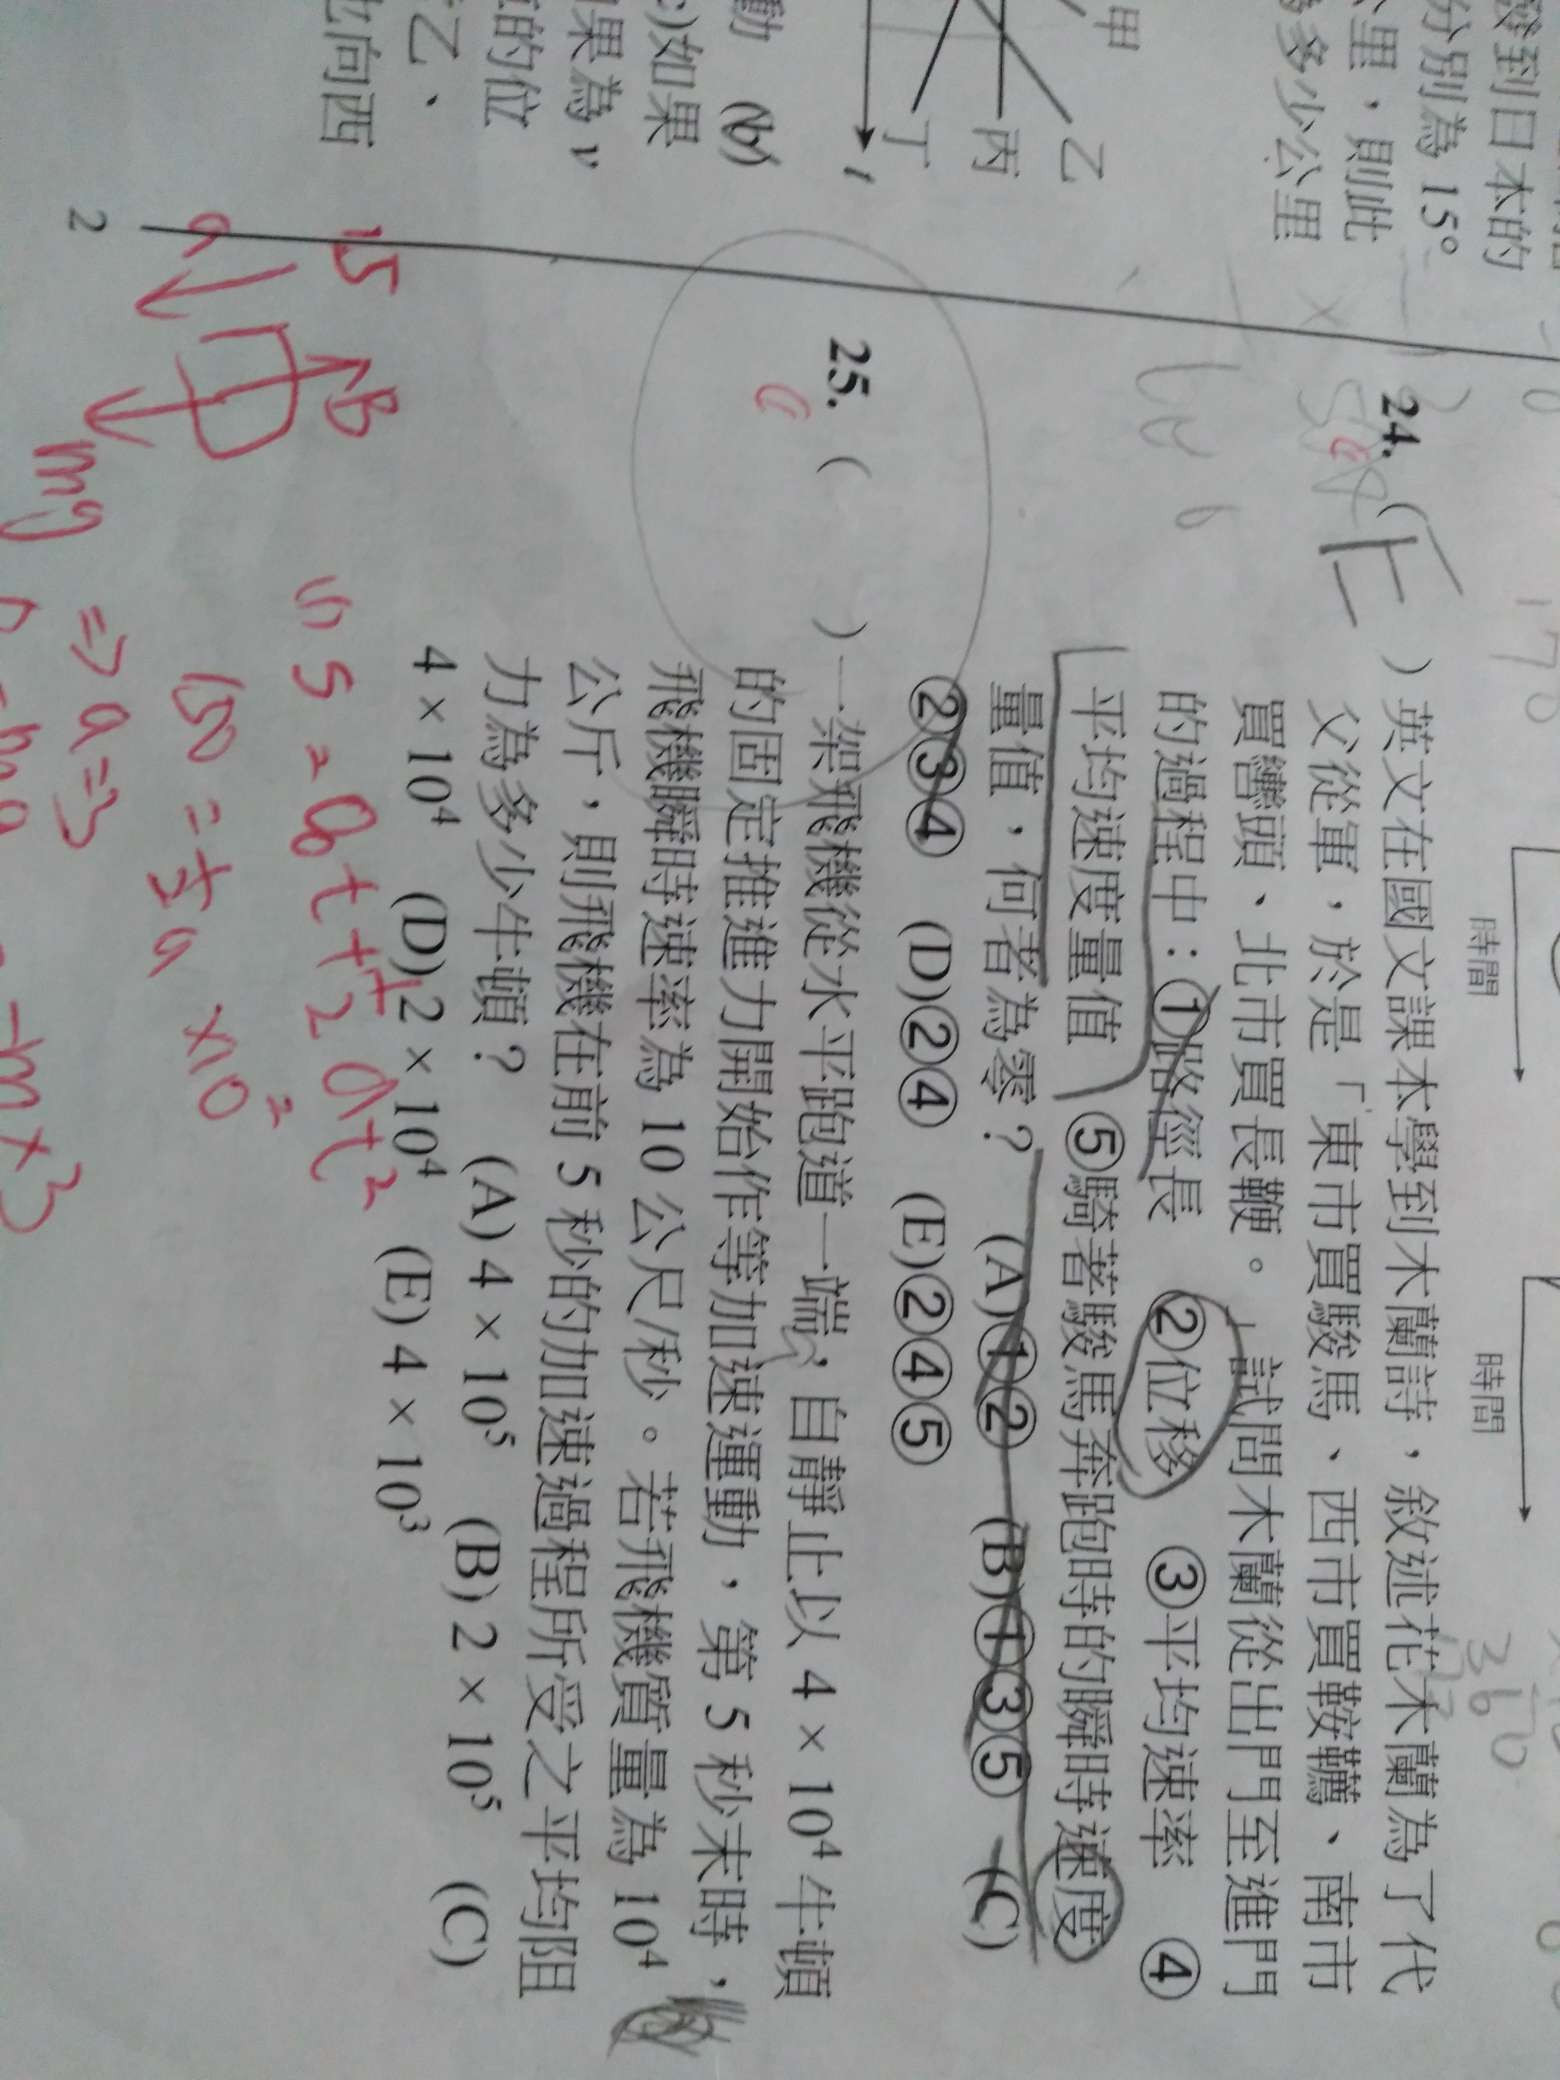 發到日本的
分別為 15°
公里，則此
多少公里
甲
乙
丙
丁
t
動 (b)
c)如果
果為 v
的位
乙、
北向西
2
時間
時間
24. (E)英文在國文課本學到木蘭詩，敘述花木蘭為了代
父從軍，於是「東市買駿馬、西市買鞍韉、南市
買轡頭、北市買長鞭。」試問木蘭從出門至進門
的過程中：①路徑長 ②位移 ③平均速率 ④
平均速度量值 ⑤騎著駿馬奔跑時的瞬時速度
量值，何者為零？ (A)①② (B)①③⑤ (C)
②③④ (D)②④ (E)②④⑤
25. ( )一架飛機從水平跑道一端，自靜止以 4 × 10⁴ 牛頓
的固定推進力開始作等加速運動，第 5 秒末時，
飛機瞬時速率為 10 公尺/秒。若飛機質量為 10⁴
公斤，則飛機在前 5 秒的加速過程所受之平均阻
力為多少牛頓？ (A) 4 × 10⁵ (B) 2 × 10⁵ (C)
4 × 10⁴ (D) 2 × 10⁴ (E) 4 × 10³
15
B
a
mg
S = V₀t + ½ at²
150 = ½ a × 10²
⇒ a = 3